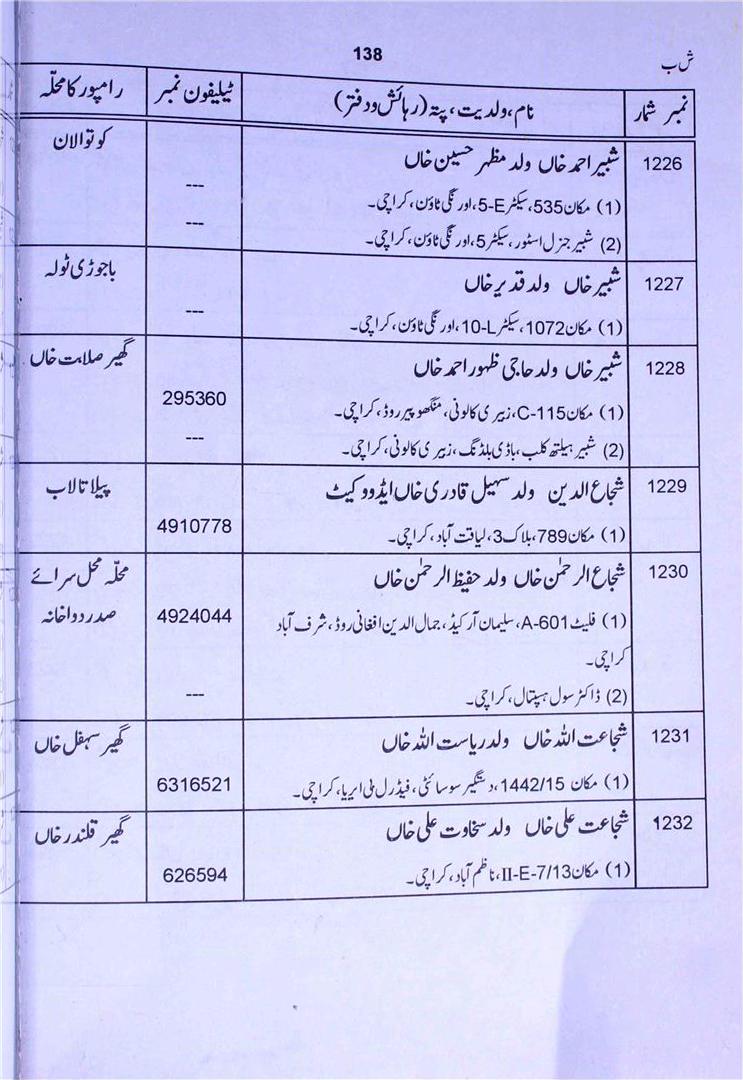 138
ش ب
نمبر شمار نام، ولدیت، پتہ (رہائش و دفتر) ٹیلیفون نمبر رامپور کا محلّہ
1226 شبیر احمد خاں ولد مظہر حسین خاں کوتوالان
(1) مکان 535، سیکٹر 5-E، اورنگی ٹاؤن، کراچی۔ ---
(2) شبیر جنرل اسٹور، سیکٹر 5، اورنگی ٹاؤن، کراچی۔ ---
1227 شبیر خاں ولد قدیر خاں باجوڑی ٹولہ
(1) مکان 1072، سیکٹر 10-L، اورنگی ٹاؤن، کراچی۔ ---
1228 شبیر خاں ولد حاجی ظہور احمد خاں گھیر صلابت خاں
(1) مکان C-115، زبیری کالونی، منگھو پیر روڈ، کراچی۔ 295360
(2) شبیر ہیلتھ کلب، باڈی بلڈنگ، زبیری کالونی، کراچی۔ ---
1229 شجاع الدین ولد سہیل قادری خاں ایڈووکیٹ پیلا تالاب
(1) مکان 789، بلاک 3، لیاقت آباد، کراچی۔ 4910778
1230 شجاع الرحمٰن خاں ولد حفیظ الرحمٰن خاں محلّہ محل سرائے
(1) فلیٹ A-601، سلیمان آرکیڈ، جمال الدین افغانی روڈ، شرف آباد 4924044 صدر دواخانہ
کراچی۔
(2) ڈاکٹر سول ہسپتال، کراچی۔ ---
1231 شجاعت اللہ خاں ولد ریاست اللہ خاں گھیر سہفل خاں
(1) مکان 1442/15، دستگیر سوسائٹی، فیڈرل بی ایریا، کراچی۔ 6316521
1232 شجاعت علی خاں ولد سخاوت علی خاں گھیر قلندر خاں
(1) مکان II-E-7/13، ناظم آباد، کراچی۔ 626594